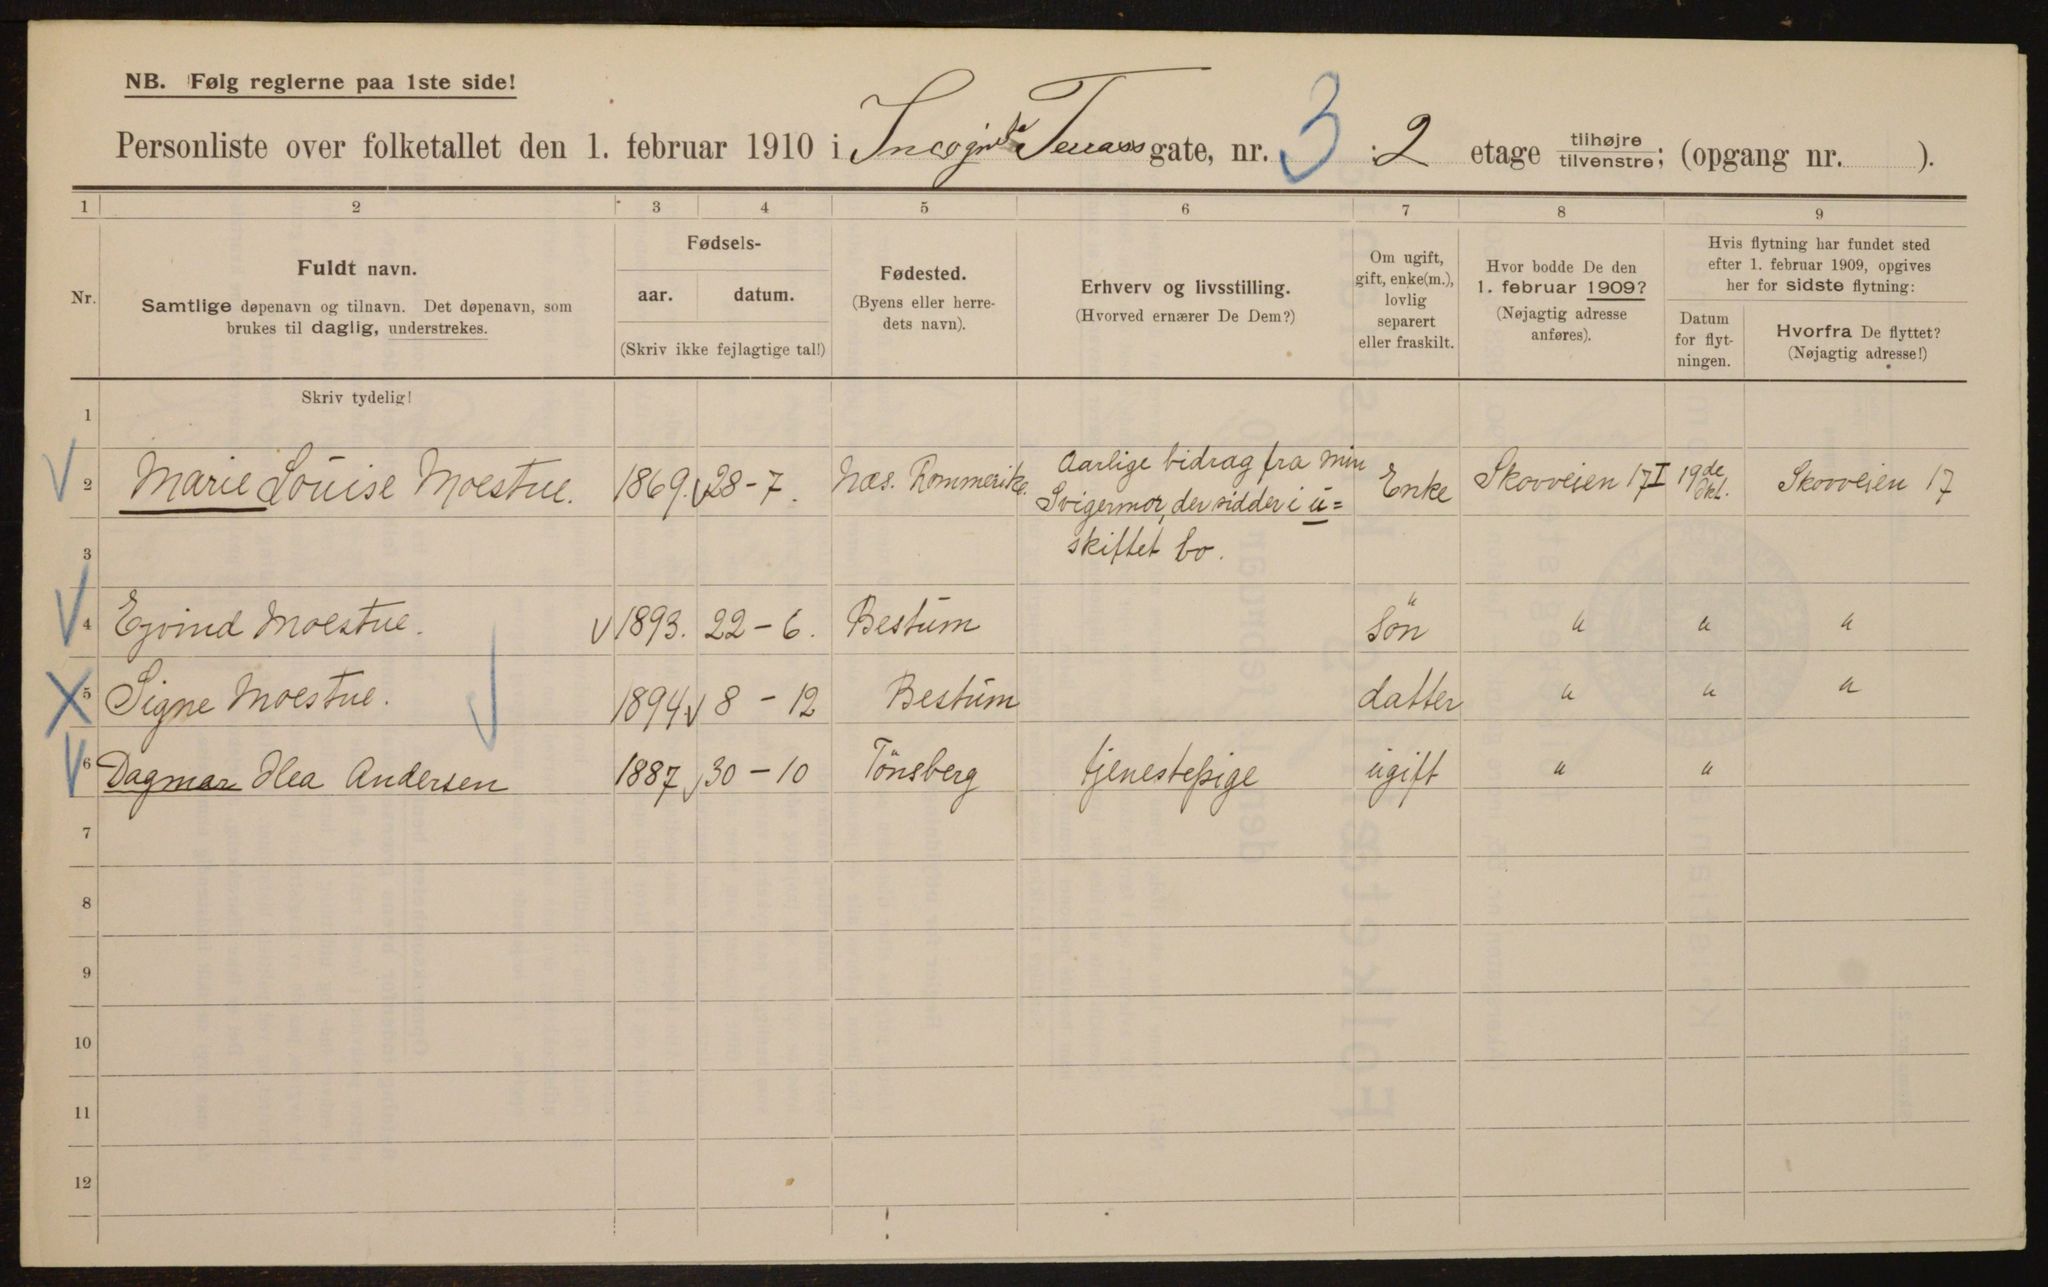 NB. Følg reglerne paa 1ste side!
Personliste over folketallet den 1. februar 1910 i Incognito Terrass gate, nr. 3 . 2 etage tilhøjre tilvenstre; (opgang nr. ).
1 2 3 4 5 6 7 8 9
Nr.
Fuldt navn.
Samtlige døpenavn og tilnavn. Det døpenavn, som
brukes til daglig, understrekes.
Fødsels-
aar. datum.
(Skriv ikke fejlagtige tal!)
Fødested.
(Byens eller herre-
dets navn).
Erhverv og livsstilling.
(Hvorved ernærer De Dem?)
Om ugift,
gift, enke(m.),
lovlig
separert
eller fraskilt.
Hvor bodde De den
1. februar 1909?
(Nøjagtig adresse
anføres).
Hvis flytning har fundet sted
efter 1. februar 1909, opgives
her for sidste flytning:
Datum
for flyt-
ningen.
Hvorfra De flyttet?
(Nøjagtig adresse!)
Skriv tydelig!
1
2 Marie Louise Moestue. 1869. 28-7. Næs. Rommerike. Aarlige bidrag fra min
Svigermor, der sidder i u=
skiftet bo.
Enke Skovveien 17 I 19de Okt. Skovveien 17
3
4 Ejvind Moestue. 1893. 22-6. Bestum Sön " " "
5 Signe Moestue. 1894 8-12 Bestum datter " " "
6 Dagmar Olea Andersen 1887 30-10 Tönsberg tjenestepige ugift " "
7
8
9
10
11
12